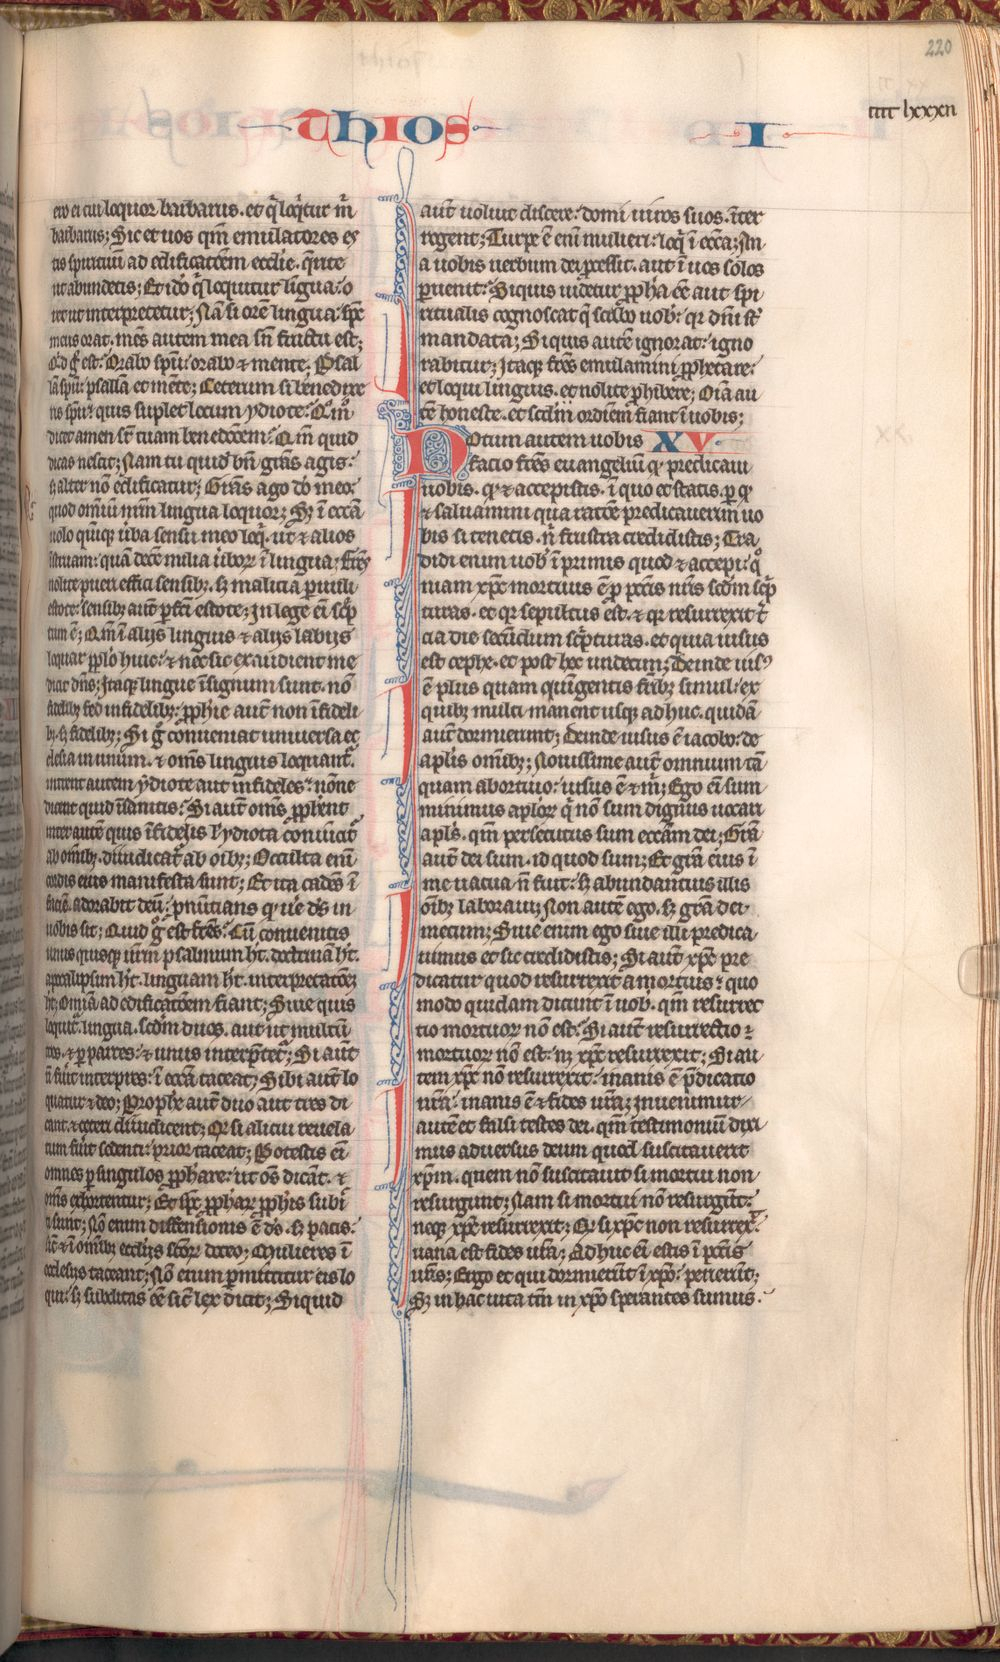 220
thios
I
iiii lxxxii
ero ei cui loquor barbarus. et q̄ loq̄tur m̄
barbarus; Sic et uos qm̄ emulatores es
tis spirituū ad edificatōem ecclīe. q̄rite
ut abundetis; Et idō q̄ loquitur lingua: o
ret ut interpretetur; Nā si orem̄ lingua: sp̄c
meus orat. mēs autem mea sn̄ fructu est;
Qd ḡ est: Orabo spū: orabo & mente. Psal
lā spū: psallā et mēte; Ceterum si benedixe
ris spū: quis suplet locum ydiote: Qm̄o
dicet amen sr̄ tuam benedcōem: Qm̄ quid
dicas nescit; Nam tu quid bn̄ grās agis:
s; alter nō edificatur; Grās ago dō meo:
quod omniū ur̄m lingua loquor; Sz ī eccā
uolo quīqz ūba sensu meo loq̄. ut & alios
īstruam: quā decē milia ūbor ī lingua; Frēs
nolite pueri effici sensibz. sz malicia puuli
estote: sensibz aut̄ pfci estote; In lege eī sc̄p
tum ē; Qm̄ ī alijs linguis & alijs labijs
loquar pplo huic: & nec sic exaudient me
dicit dn̄s; Itaqz lingue ī signum sunt. nō
fidelibz sed infidelibz: pphie aut̄ non īfideli
bz. sz fidelibz; Si ḡ conueniat uniuersa ec
clesia in unum. & om̄s linguis loquant̄.
intrent autem ydiote aut infideles: nōne
dicent quid īsanitis: Si aut̄ om̄s pphent
intret autē quis īfidelis ł ydiota conuīcit̄
ab om̄ibz. diiudicat̄ ab oībz; Occulta enī
cordis eius manifesta sunt; Et ita cadēs ī
faciē. adorabit deū: pnūtians q uē dš in
uobis sit; Quid ḡ est frēs: Cū conuenitis
unus quisqz ur̄m psalmum ht̄. doctrinā ht̄.
apocalipsum ht̄. linguam ht̄. interpretatōez
ht̄; Omīa ad edificatōem fiant; Siue quis
loquit̄ lingua. scdm duos. aut ut multū
tres. & p partes: & unus interp̄tet̄; Si aut̄
n̄ fūit interpres: ī eccā taceat; Sibi aut̄ lo
quatur & deo; Prophe aut̄ duo aut tres di
cant. & ceteri diiudicent; Qr si alicui reuela
tum fūit sedenti: prior taceat; Potestis eī
omnes p singulos pphare: ut oms dicāt. &
om̄s exhortentur; Et sp̄c pphar pphis subi
ti sunt; Nō enim dissensionis ē dš. sz pacis:
sic̄ & ī om̄ibz eccl̄ijs sc̄or doceo; Mulieres ī
ecclesijs taceant; Nō enim pmittitur eis lo
qui: sz subditas eē sic̄ lex dicit; Siquid
aut̄ uolunt discere: domi uiros suos. īter
rogent; Turpe ē enī mulieri: loq̄ ī eccā; An
a uobis uerbum dei pcessit. aut ī uos solos
puenit: Siquis uidetur ppha eē aut spi
ritualis cognoscat q̄ sc̄bo uobˀ: qr dn̄i st̄
mandata; Siquis autē ignorat: igno
rabitur; Itaqz frēs emulamini pphetare:
et loqui linguis. et nolite phibere; Oīā au
tē honeste. et scdm ordinē fiant ī uobis;
Notum autem uobis XV.
facio frēs euangeliū q predicaui
uobis. q & accepistis. ī quo et statis. p q
& saluamini qua ratōe predicauerim uo
bis si tenetis. n̄ frustra credidistis; Tra
didi enim uobˀ ī primis quod & accepi: q̊
niam xp̄c mortuus ē p pctīs nr̄is scdm sc̄p
turas. et qr sepultus est. & qr resurrexit t̄
cia die secūdum sc̄pturas. et quia uisus
est cephe. et post hec undecim; Deinde uisˀ
ē plus quam quīgentis fr̄ibz simul: ex
quibz multi manent usqz ad huc. quidā
aut̄ dormierunt; Deinde uisus ē iacobo: de
aplīs om̄ibz; Nouissime aut̄ omnium tā
quam abortiuo: uisus ē & m̄; Ego eī sum
minimus aplor q̄ nō sum dignus uocari
aplš. qm̄ persecutus sum eccām dei; Grā
aut̄ dei sum. id quod sum; Et grā eius ī
me uacua n̄ fuit: sz abundantius illis
oībz laboraui; Non autē ego. sz grā dei
mecum; Siue enim ego siue illi predica
uimus et sic credidistis; Si aut̄ xp̄c pre
dicatur quod resurrexit a mortuis: quo
modo quidam dicunt ī uobˀ. qm̄ resurrec
tio mortuor nō est: Si aut̄ resurrectio
mortuor nō est: nz xp̄c resurrexit; Si au
tem xp̄c nō resurrexit: inanis ē p̄dicatio
nr̄a. inanis ē & fides ur̄a; Inuenimur
autē et falsi testes dei. qm̄ testimoniū dixi
mus aduersus deum quod suscitauerit
xp̄m. quem nō suscitauit si mortui non
resurgunt; Nam si mortui nō resurgūt:
neqz xp̄c resurrexit; Qr si xp̄c non resurrex̄:
uana est fides ur̄a; Adhuc eī estis ī pctīs
ur̄is; Ergo et qui dormierūt ī xp̄o: perierūt;
Sz in hac uita tm̄ in xp̄o sperantes sumus.